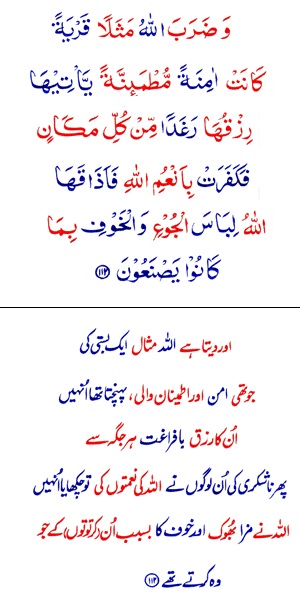 وَضَرَبَ اللّٰهُ مَثَلًا قَرْيَةً
كَانَتْ اٰمِنَةً مُّطْمَئِنَّةً يَّاْتِيْهَا
رِزْقُهَا رَغَدًا مِّنْ كُلِّ مَكَانٍ
فَكَفَرَتْ بِاَنْعُمِ اللّٰهِ فَاَذَاقَهَا
اللّٰهُ لِبَاسَ الْجُوْعِ وَالْخَوْفِ بِمَا
كَانُوْا يَصْنَعُوْنَ ﴿۱۱۲﴾
اور دیتا ہے اللہ مثال ایک بستی کی
جو تھی امن اور اطمینان والی، پہنچتا تھا اُنہیں
اُن کا رزق بافراغت ہر جگہ سے
پھر ناشکری کی اُن لوگوں نے اللہ کی نعمتوں کی تو چکھایا اُنہیں
اللہ نے مزا بھُوک اور خوف کا بسبب اُن (کرتوتوں) کے جو
وہ کرتے تھے ﴿۱۱۲﴾